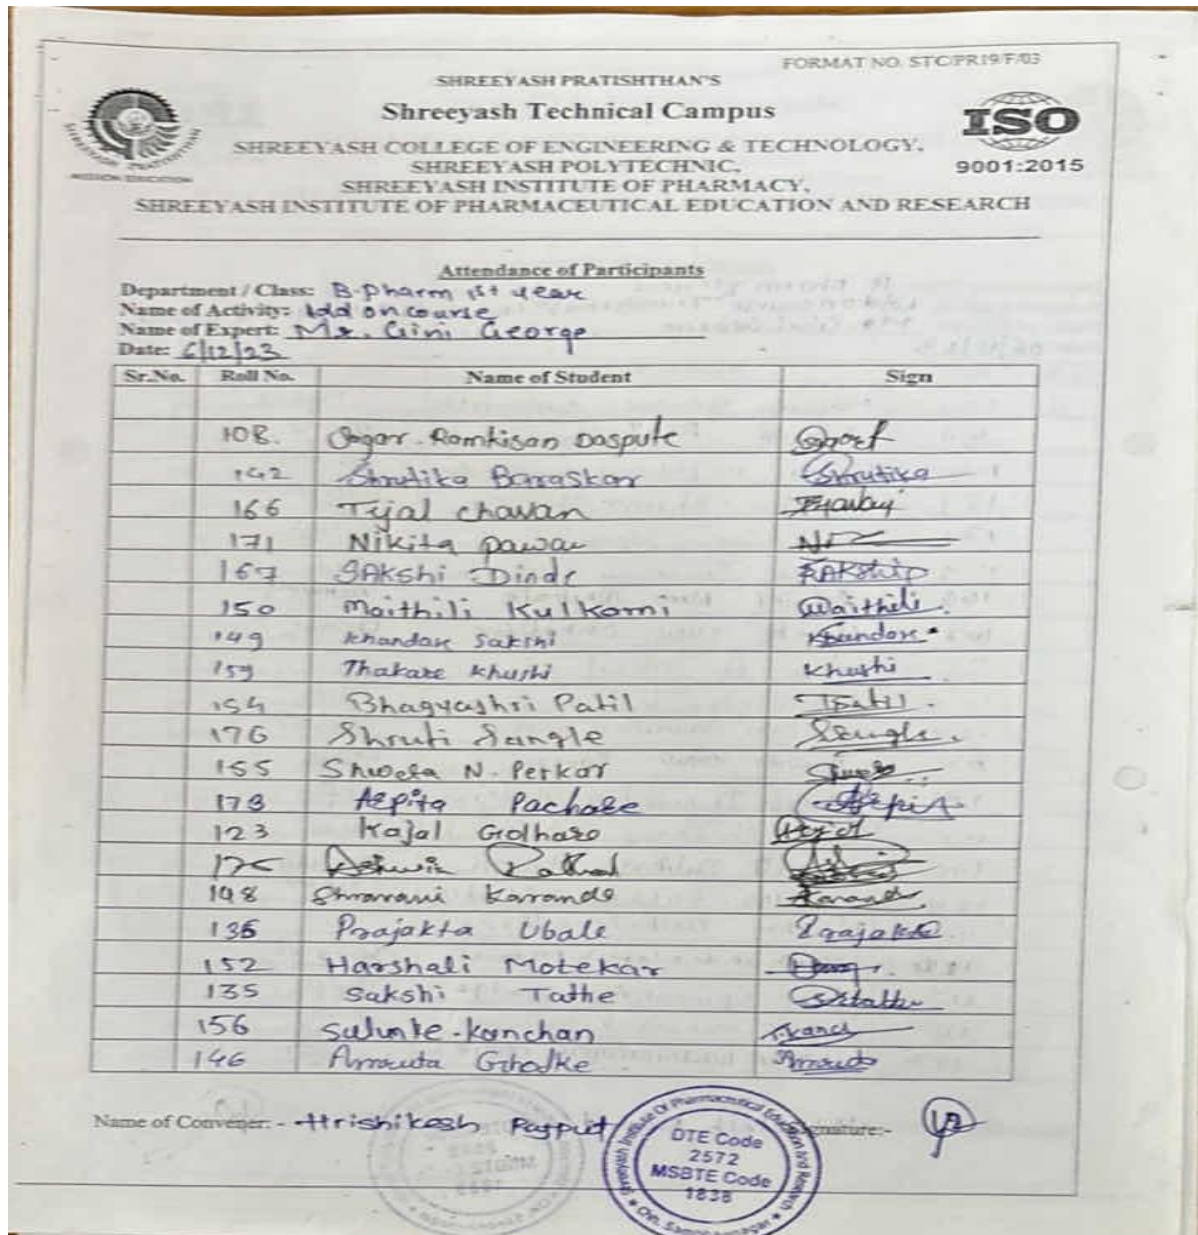 FORMAT NO. STC/PR19/F/03
SHREEYASH PRATISHTHAN'S
Shreeyash Technical Campus
SHREEYASH COLLEGE OF ENGINEERING & TECHNOLOGY,
SHREEYASH POLYTECHNIC,
SHREEYASH INSTITUTE OF PHARMACY,
SHREEYASH INSTITUTE OF PHARMACEUTICAL EDUCATION AND RESEARCH
SHREEYASH PRATISHTHAN
MISSION EDUCATION
ISO
9001:2015
Attendance of Participants
Department / Class: B.Pharm 1st year
Name of Activity: Add on course
Name of Expert: Mr. Gini George
Date: 6/12/23
Sr.No. Roll No. Name of Student Sign
108. Sagar Ramkisan Daspute
142 Shrutika Baraskar Shrutika
166 Tejal chavan
171 Nikita pawar
167 SAKshi Dinde
150 Maithili Kulkarni Maithili
149 Khandare Sakshi Khandare
159 Thakare Khushi Khushi
154 Bhagyashri Patil
176 Shruti Sangle Sangle
155 Shweta N. Perkar
178 Arpita Pachare
123 Kajal Golhare
Ashwin Rathod
148 Shravani Karande
136 Prajakta Ubale Prajakta
152 Harshali Motekar
135 Sakshi Tathe
156 Salunke-Kanchan
146 Amruta Gholke Amruta
Name of Convener:- Hrishikesh Rajput Signature:-
Shreeyash Institute Of Pharmaceutical Education and Research
DTE Code
2572
MSBTE Code
1838